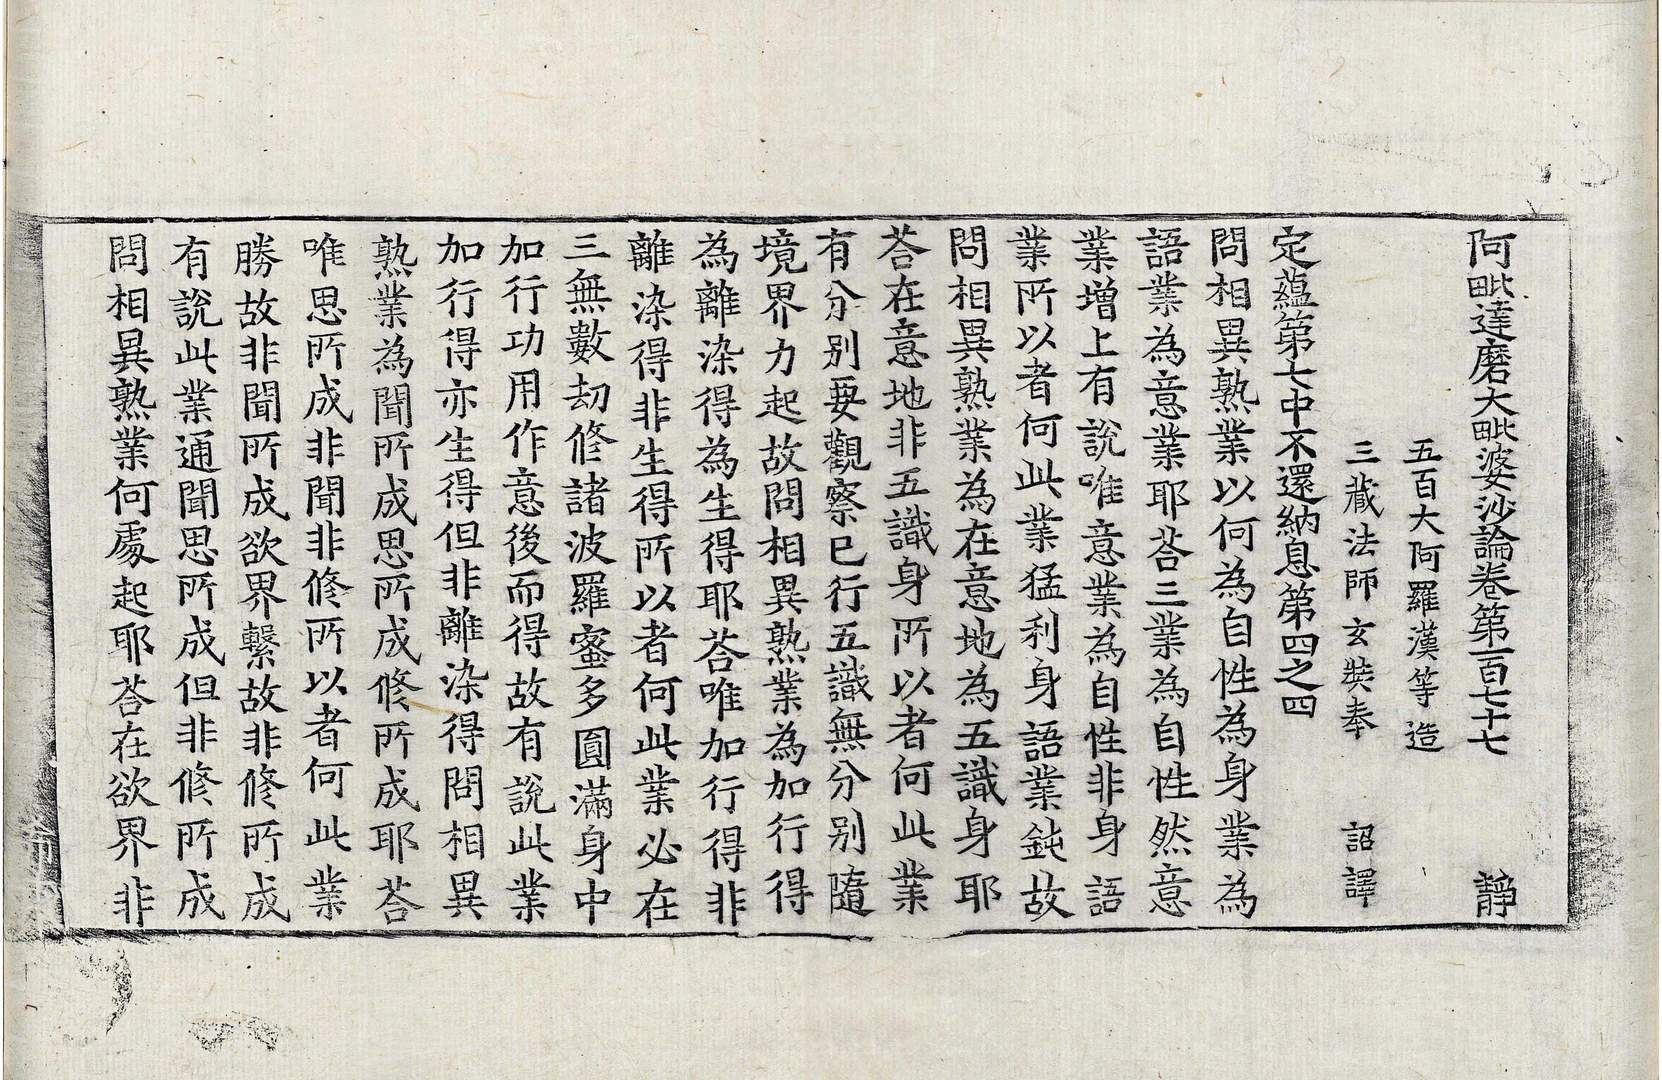 阿毗達磨大毗婆沙論卷第一百七十七　静
五百大阿羅漢等造
三藏法師玄奘奉　詔譯
定蘊第七中不還納息第四之四
問相異熟業以何為自性為身業為
語業為意業耶荅三業為自性然意
業增上有說唯意業為自性非身語
業所以者何此業猛利身語業鈍故
問相異熟業為在意地為五識身耶
荅在意地非五識身所以者何此業
有分別要觀察已行五識無分別隨
境界力起故問相異熟業為加行得
為離染得為生得耶荅唯加行得非
離染得非生得所以者何此業必在
三無數劫修諸波羅蜜多圓滿身中
加行功用作意後而得故有說此業
加行得亦生得但非離染得問相異
熟業為聞所成思所成修所成耶荅
唯思所成非聞非修所以者何此業
勝故非聞所成欲界繫故非修所成
有說此業通聞思所成但非修所成
問相異熟業何處起耶荅在欲界非